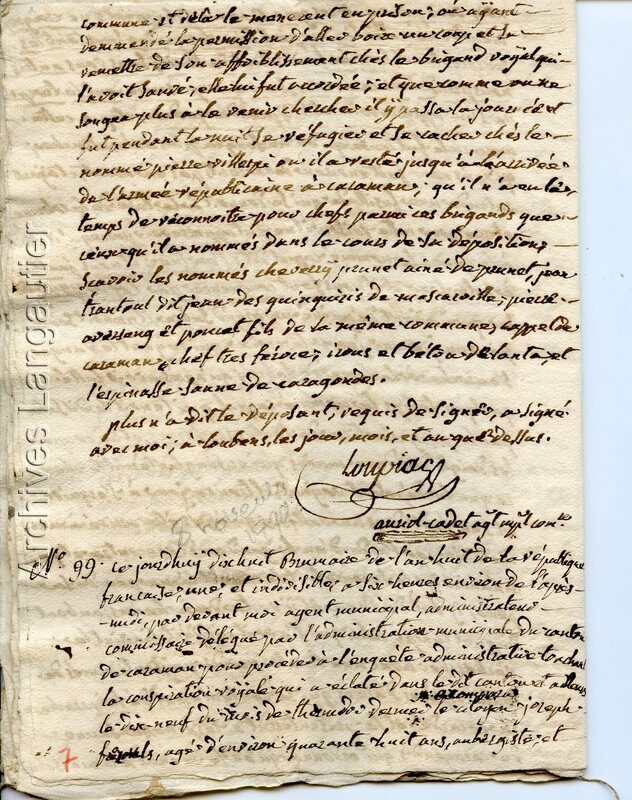 commune et de la le menerent en prison; où ayant
demmandé la permission d'aller boire un coup et se
remettre de son affoiblissement chès le brigand royal qui
l'avoit sauvé, elle lui fut accordée; et que comme on ne
songea plus à le venir chercher il y passa la journée et
fut pendant la nuit se réfugier et se cacher chès le
nommé pierre villespi ou il a resté jusqu'à l'arrivée
de l'armée républicaine à caraman; qu'il n'a eu le
temps de réconnoitre pour chefs parmi ces brigands que
ceux qu'il a nommés dans le cours de sa déposition,
scavoir les nommés cheverry, prunet ainé de prunet, jean
trantoul dit jean des quinquiris de mascarville, pierre
averseng et poncet fils de la même commune, cappel de
caraman, chef tres féroce; irous et béton de lanta, et
l'espinasse jeune de caragoudes.
plus n'a dit le déposant, requis de signer, a signé
avec moi; à loubens, les jour, mois, et an que dessus.
Loupiac
auriol-cadet agt mpl com.re
8 novembre
1799
N.º 99. ce jourdhuy dixhuit Brumaire de l'an huit de la république
francaise, une, et indivisible, a six heures environ de l'après-
midi, par devant moi agent municipal, administrateur
commissaire délégué par l'administration municipale du canton
de caraman pour procéder à l'enquête administrative touchant
la conspiration royale qui a éclaté dans le dit canton et ailleurs
a comparu
le dix neuf du mois de thermidor dernier le citoyen joseph
agé d'environ quarante huit ans, aubergiste, et
7
Archives Langautier